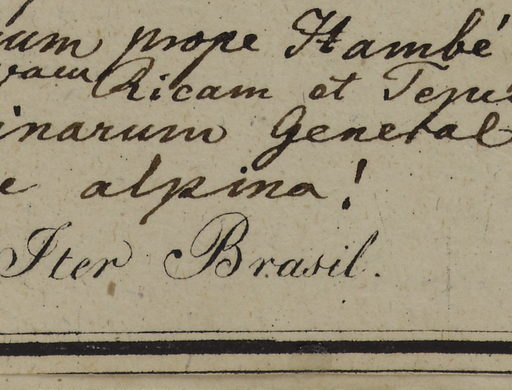 um prope Itambé
Ricam et
inarum General
e alpina!
Iter Brasil.